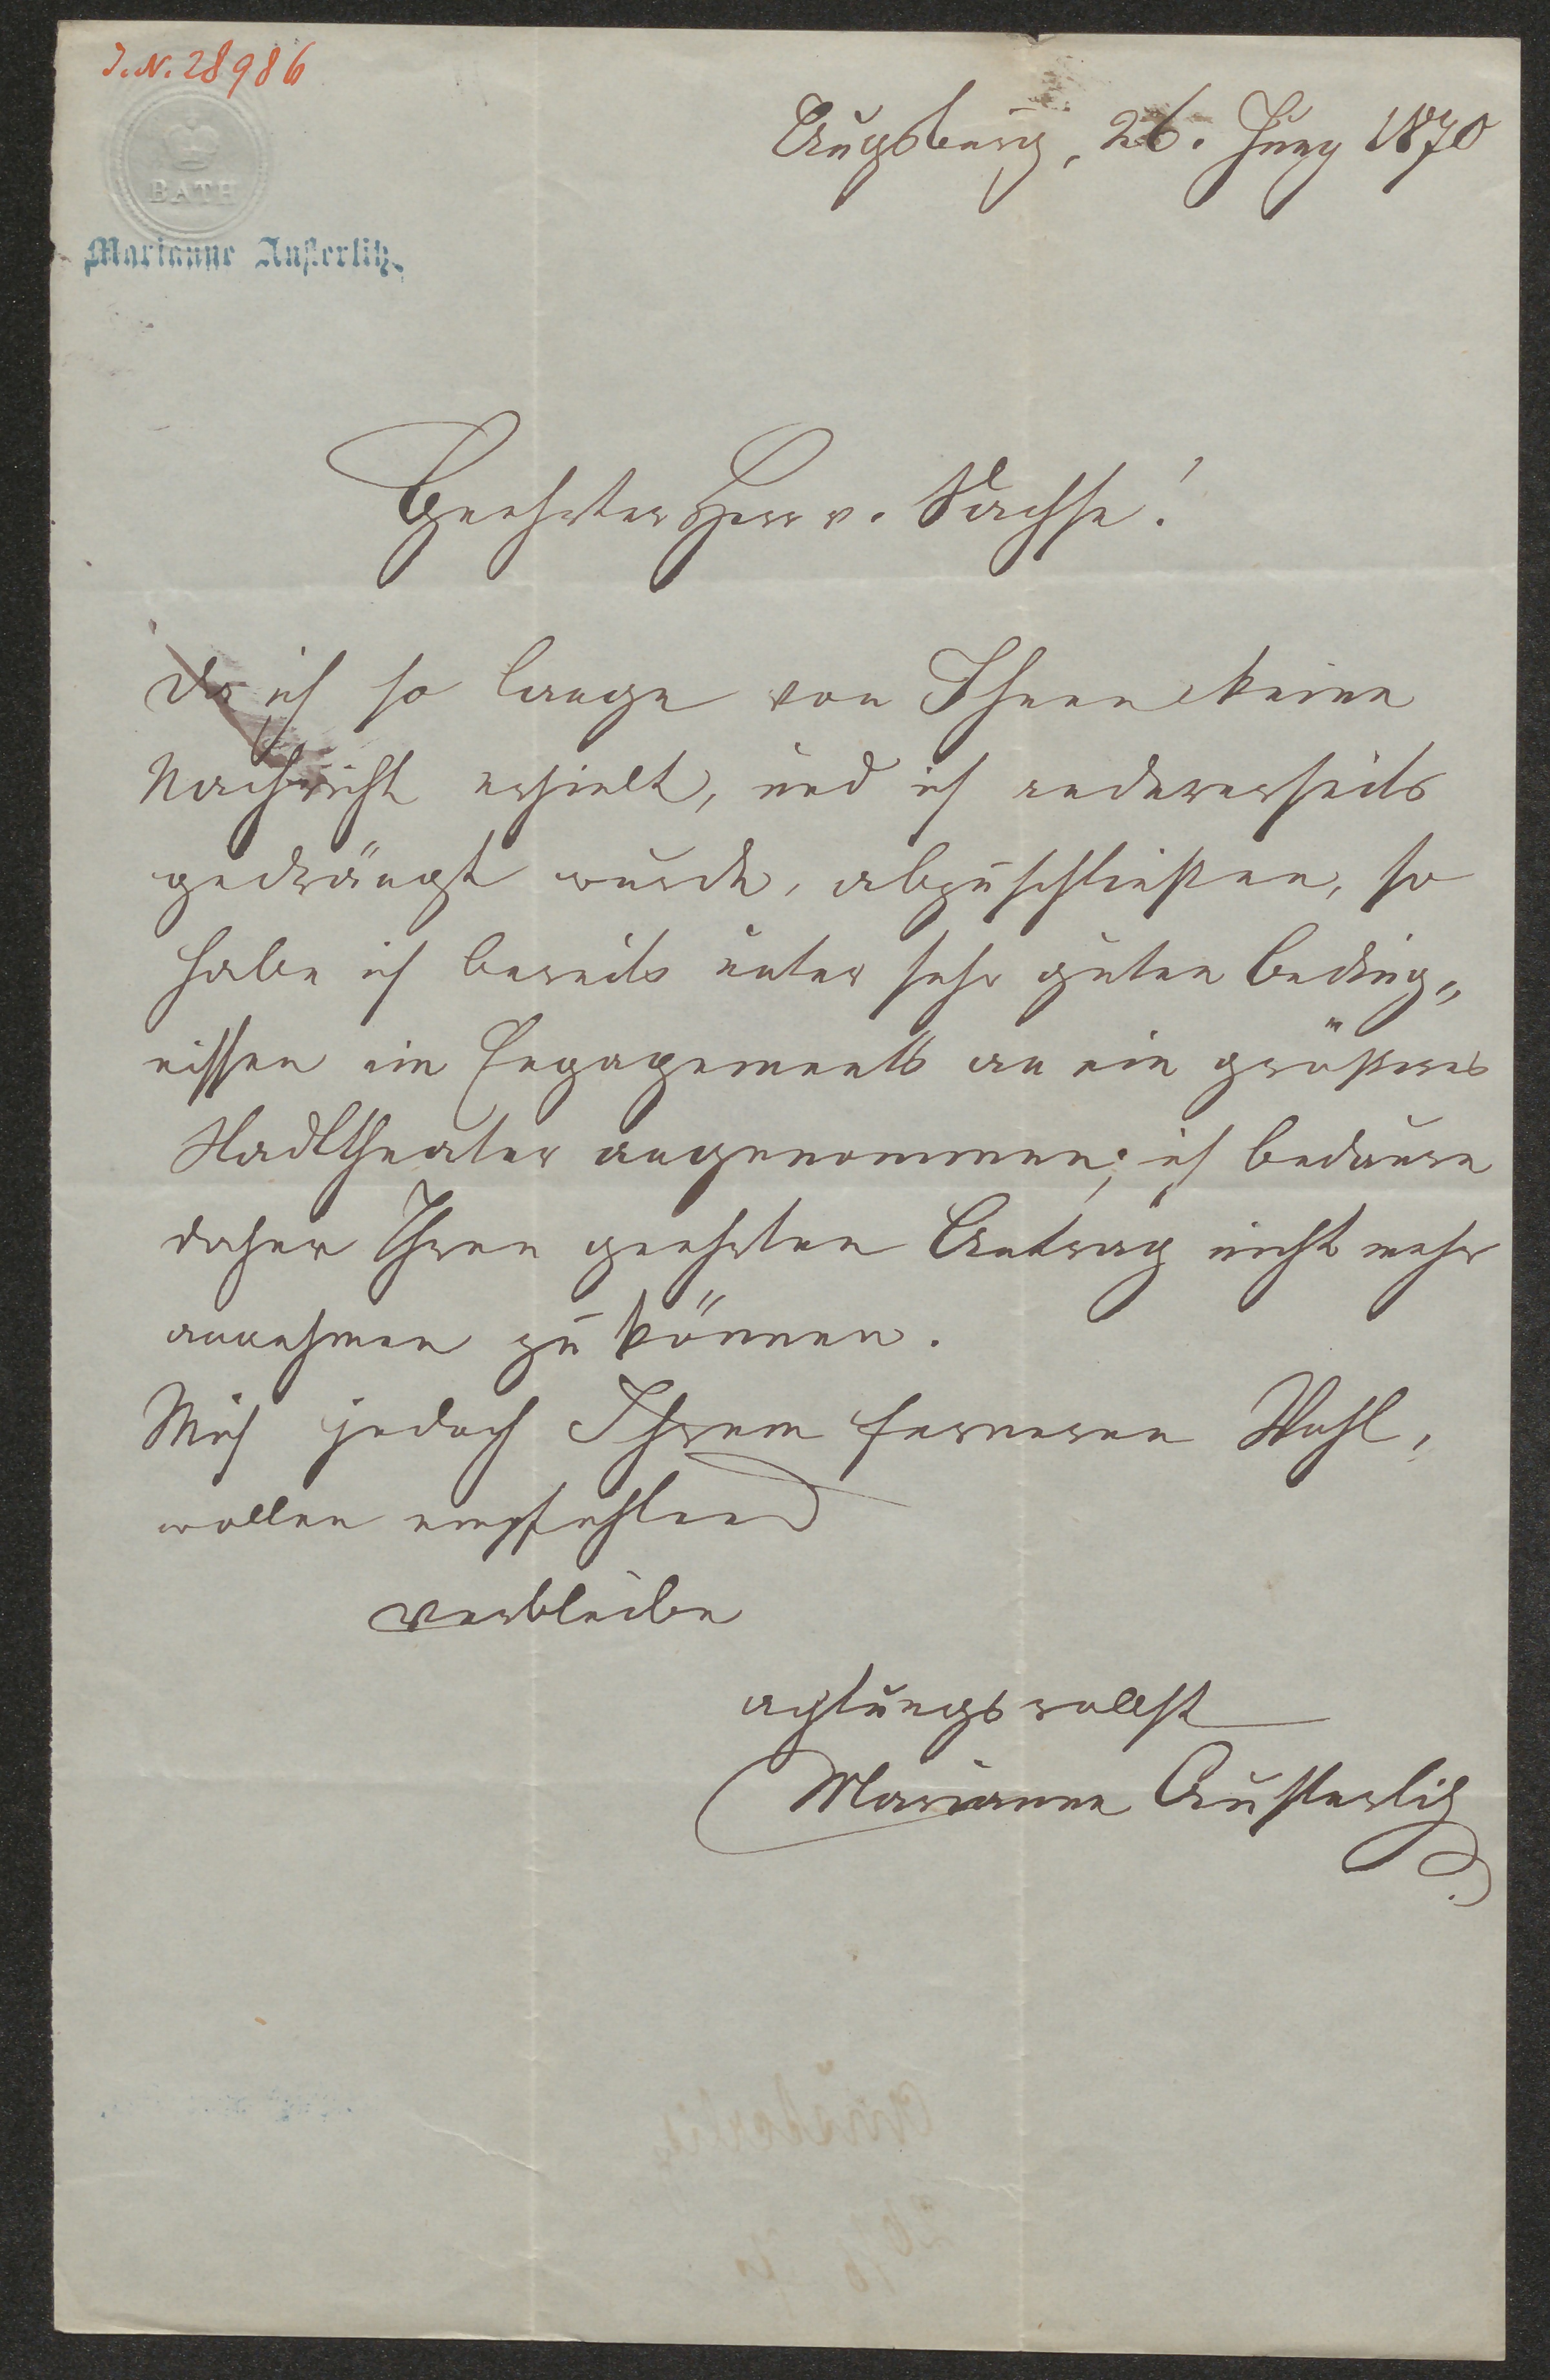 J. N. 28986
BATH
Marianne Austerlitz.
Augsburg, 26. Juny 1870
Geehrter Herr v. Sachse!
Da ich so lange von Ihnen keine
Nachricht erhielt, und ich andererseits
gedrängt wurde, abzuschließen, so
habe ich bereits unter sehr guten Beding„
nissen ein Engagements an ein größeres
Stadttheater angenommen; ich bedaure
daher Ihren geehrten Antrag nicht mehr
annehmen zu können.
Mich jedoch Ihrem ferneren Wohl,
wollen empfehlend
verbleibe
achtungsvollst
Marianne Austerlitz